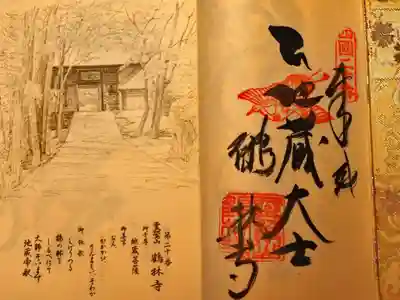 奉拝
地蔵大士
鶴林寺
第二十番
霊鷲山 鶴林寺
御本尊
地蔵菩薩
御真言
御詠歌
しげりつる
鶴の林を
しるべにて
大師ぞいます
地蔵帝釈